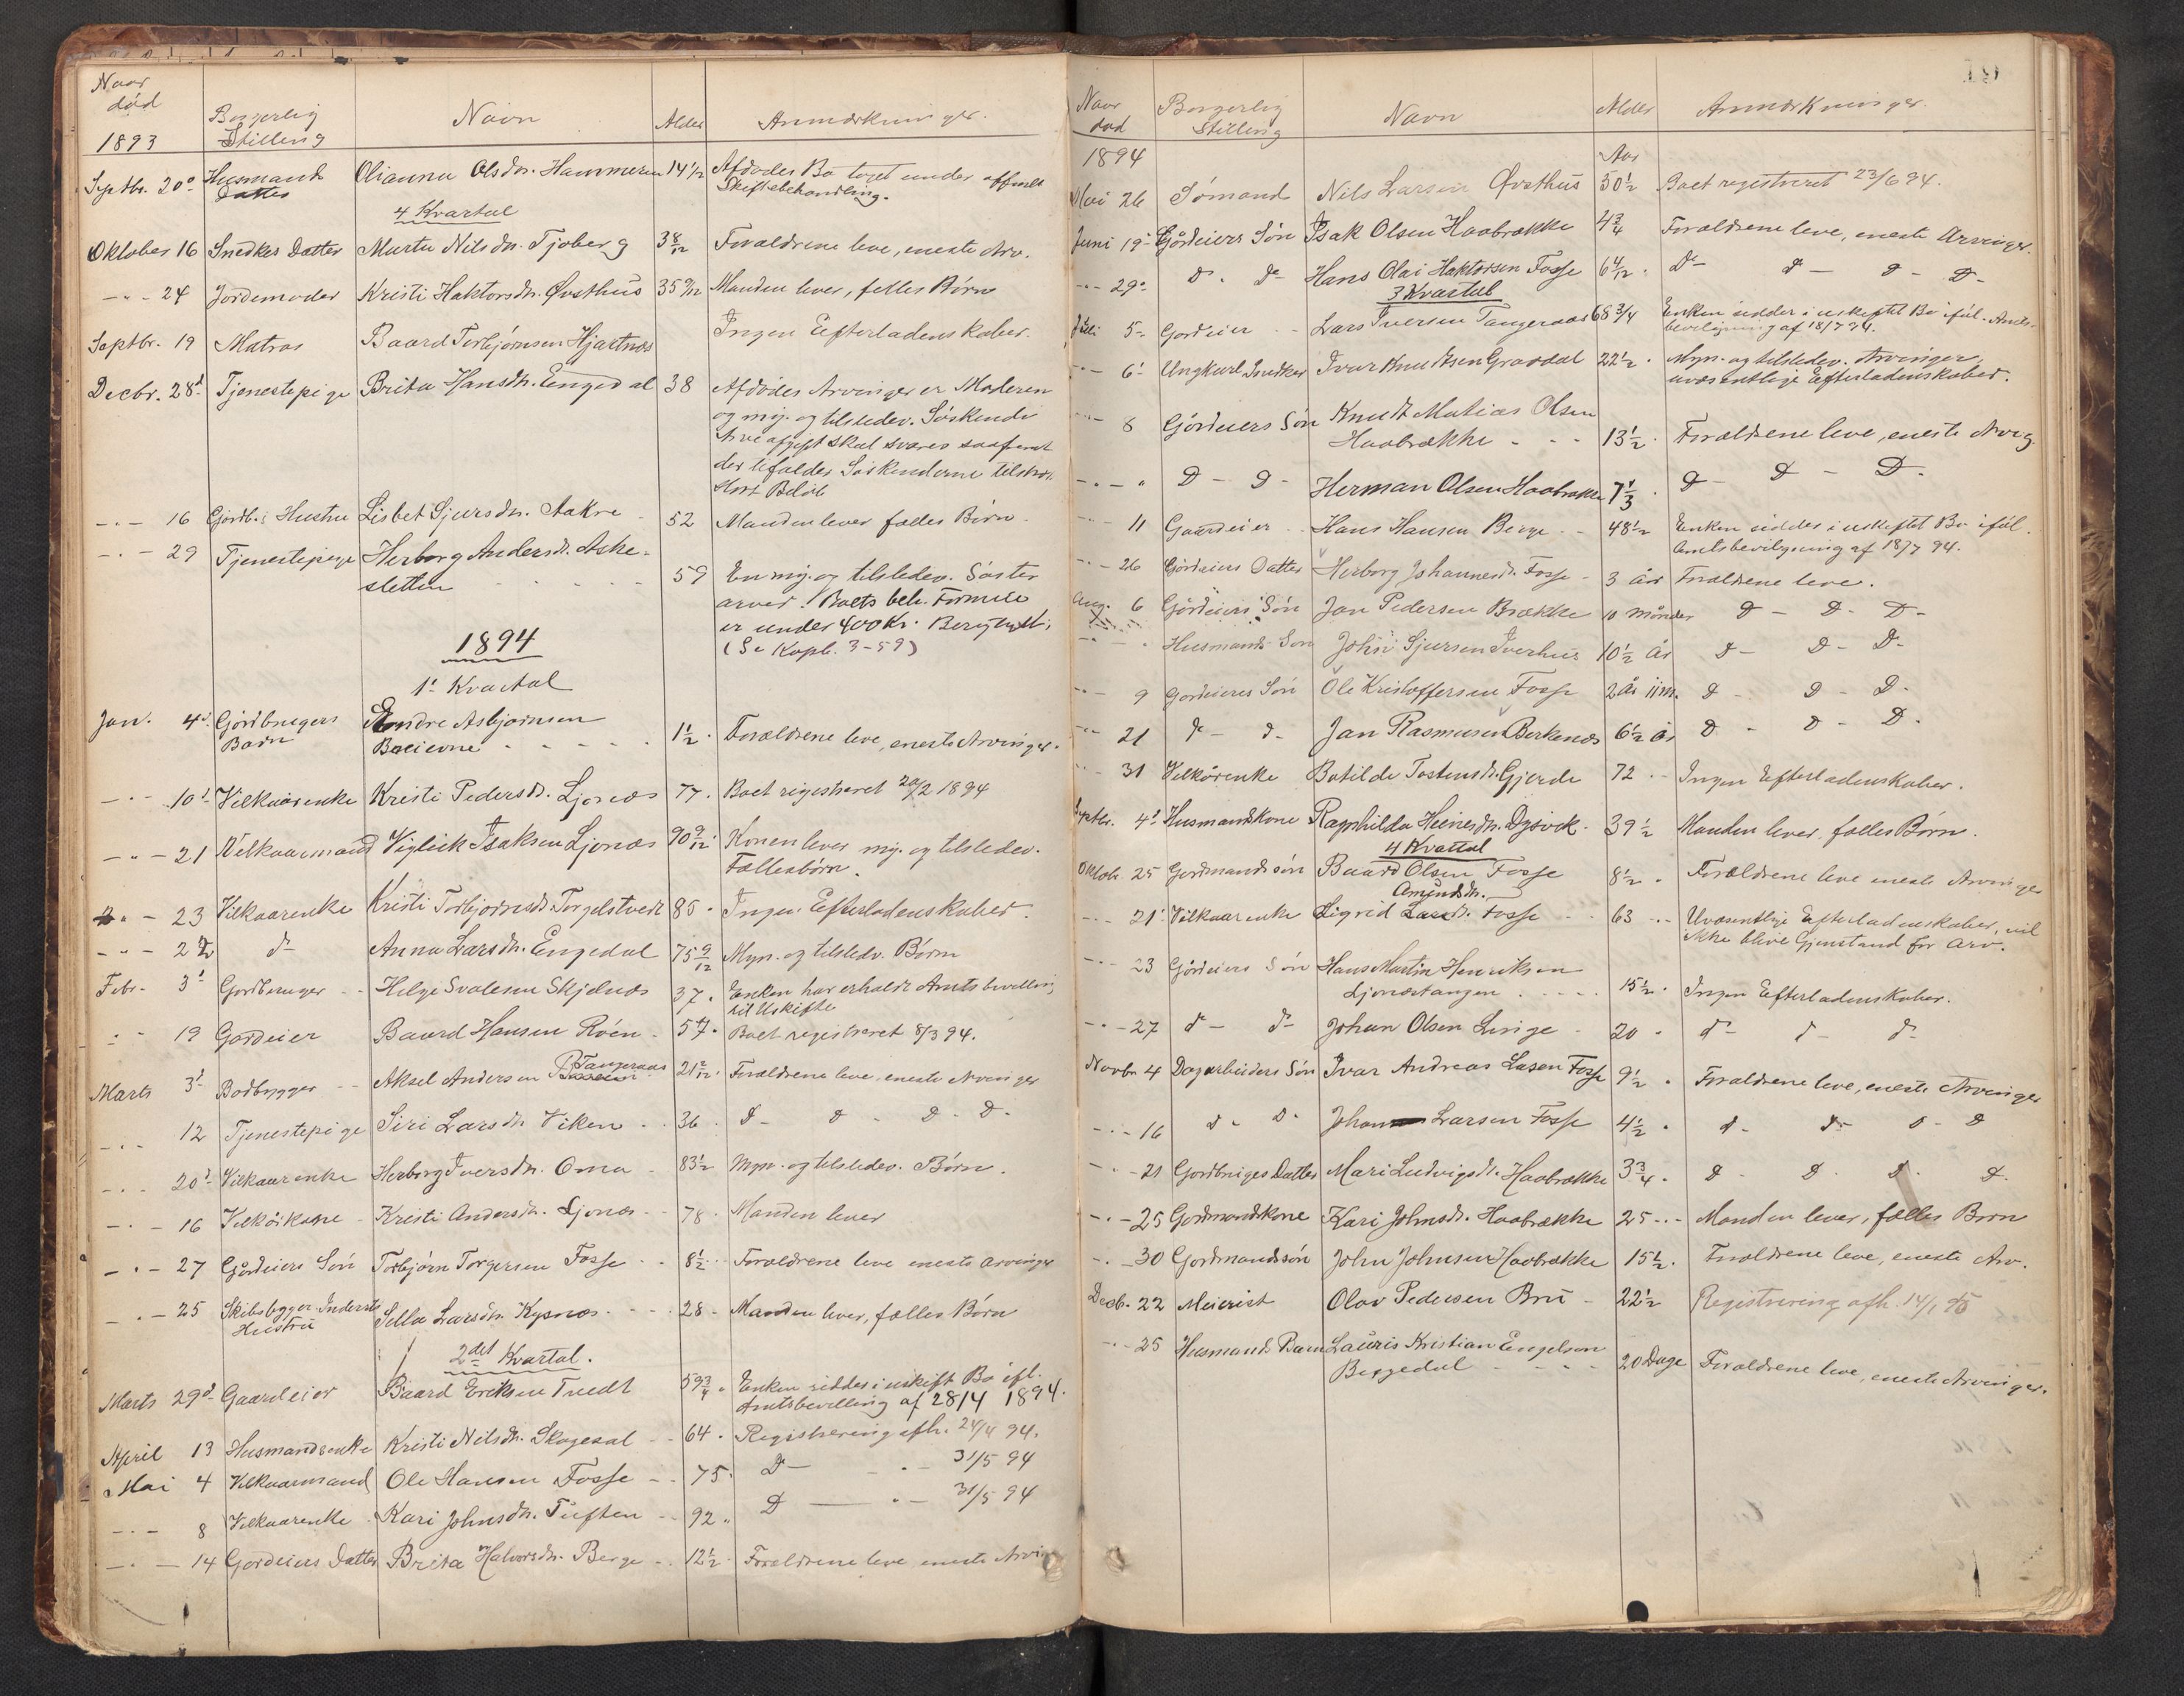 Naar død 1893 Borgerlig Stilling Navn Alder Anmærkninger.
Septbr. 20d Husmands Datter Olianna Olsdn. Hammeren 14 1/12 Afdødes Bo taget under offentl
Skiftebehandling.
4 Kvartal
Oktober 16 Snedkes Datter Marta Nilsdn. Tjoberg 3 8/12 Forældrene leve, eneste Arv.
-"- 24 Jordemoder Kristi Haktorsdn. Øvsthus 35 9/12 Manden lever, felles Børn
Septbr. 19 Matros Baard Torbjørnsen Hjartnæs Ingen Efterladenskaber.
Decbr. 28d Tjenestepige Brita Hansdn. Engedal 38 Afdødes Arvinger er Moderen
og myn. og tilstedev. Søskende
Arveafgift skal svares saafremt
der tilfalder Søskenderne
stort Beløb
-"- 16 Gjordb.s Hustru Lisbet Sjursdn. Aakre 52 Manden lever fælles Børn.
-"- 29 Tjenestepige Herborg Andersdn. Aske-
sletten 59 En myn. og tilstedev. Søster
arver. Boets beh. Formue
er under 400 Kr.
(Se Kopb. 3-59)
1894
1' Kvartal
Jan. 4d. Gjordbrugers Barn Endre Asbjørnsen
1½. Forældrene leve, eneste Arvinger.
-"- 10d Vilkaarenke Kristi Pedersdn. Ljonæs 77. Boet registreret 20/2 1894
-"- 21 Velkaarmand Vigleik Isaksen Ljonæs 90 9/12 Konen lever myn. og tilstedev.
Fællesbørn.
-"- 23 Vilkaarenke Kristi Torbjørnsd. Torgelstvedt 85. Ingen Efterladenskaber.
-"- 22 d- Anna Larsdn. Engedal 75 9/12 Myn. og tilstedv. Børn
Febr. 3d Gordbruger Helge Svalesen Skjelnæs 37. Enken har erholdt Amtsbevilling
til Uskifte
-"- 19 Gordeier Baard Hansen Røen 57. Boet registreret 8/3 94.
Marts 3d Bodbygger Aksel Andersen Tangeraas 21 2/12. Forældrene leve, eneste Arvinger
-"- 12 Tjenestepige Siri Larsdn Viken 36. D- D- D- D-
-"- 20d Vilkaarenke Herborg Iversdn. Oma 83½ Myn. og tilstedev. Børn.
-"- 16 Vilkårkone Kristi Andersdn. Ljonæs 78. Manden lever
-"- 27 Gårdeiers Søn Torbjørn Torgersen Fosse 8½. Forældrene leve eneste Arvinger
-"- 25 Skibsbygger Inderste Hustru Sella Larsdn. Kysnæs 28 Manden lever, fælles Børn
2det Kvartal.
Marts 29d Gaardeier Baard Eriksen Tvedt 59 3/4. Enken sidder i uskift Bo ifl.
Amtsbevilling af 28/4 1894.
April 13 Husmandsenke Kristi Nilsdn. Skogasel 64. Registrering afh. 24/4 94.
Mai 4 Vilkaarmand Ole Hansen Fosse 75. D- -"- 31/5 94
-"- 8 Vilkaarenke Kari Johnsdn. Tuften 92. D- -"- 31/5 94
-"- 14 Gordeiers Datter Brita Halvorsdn. Berge 12½. Forældrene leve eneste Arvin
Naar død Borgerlig Stilling Navn Alder Anmærkninger.
1894 Aar
Mai 26 Sømand Nils Larsen Øvsthus 50½ Boet registreret 23/6 94.
Juni 19d Gårdeiers Søn Isak Olsen Haabrække 4 3/4 Forældrene leve, eneste Arvinger.
-"- 29d D. D- Hans Olai Haktorsen Fosse 6 4/12. D- D- D- D-
3 Kvartal
Juli 5- Gordeier Lars Iversen Tangeraas 68 3/4 Enken sidder i uskiftet Bo iføl. Amts-
bevilgning af 18/7 94.
-"- 6d Ungkarl Snedker Ivar Knudtsen Gravdal 22½. Myn. og tilstedev. Arvinger,
uvæsentlige Efterladenskaber.
-"- 8 Gårdeiers Søn Knudt Matias Olsen
Haabrække 13½. Forældrene leve, eneste Arvig.
-"- " D- D- Herman Olsen Haabrække 7 1/3. D- D- D.
-"- 11 Gaardeier Hans Hansen Berge 48½ Enken sidder i uskiftet Bo iføl.
Amtsbevilgning af 18/7 94.
-"- 26 Gårdeiers Datter Herborg Johannesd. Fosse 3 år Forældrene leve.
Aug. 6 Gårdeiers Søn Jan Pedersen Brække 10 Måneder D- D- D-
-"- " Husmands Søn John Sjursen Tverhus 10½ År D- D- D-
-"- 9 Gordeieres Søn Ole Kristoffersen Fosse 2 År 11 m. D- D- D-
-"- 21 D- D- Jan Rasmusen Berkenæs 6½ år D- D- D-
-"- 31 Velkårenke Botilde Tostensdn. Gjerde 72 Ingen Efterladenskaber.
Septbr. 4d Husmandskone Ragnhilda Heinesdn. Dysvik 39½ Manden lever, fælles Børn.
4 Kvartal
Oktob. 25 Gordmands søn Baard Olsen Fosse 8½. Forældrene leve eneste Arvinger
-"- 21 Vilkaarenke Sigrid Amundsdn. Fosse 63 Uvæsentlige Efterladenskaber, vil
ikke blive Gjenstand for Arv.
-"- 23 Gårdeiers Søn Hans Martin Henriksen
Ljonæstangen 15½. Ingen Efterladenskaber.
-"- 27 d- d- Johan Olsen Linge 20. d- d- d-
Novbr 4 Dagarbeiders Søn Ivar Andreas Lasen Fosse 9½. Forældrene leve, eneste Arvinger
-"- 16 d- D- Johan Larsen Fosse 4½. d- d- d- D
-"- 21 Gordbruges Datter Mari Ludvigsdn. Haabrække 3 3/4. D- D. D. D.
-"- 25 Gordmandskone Kari Johnsdn. Haabrække 25 Manden lever, fælles Børn
-"- 30 Gordmandssøn John Johnsen Haabrække 15½. Forældrene leve, eneste Arv.
Decb. 22 Meierist Olav Pedersen Bru 22½ Registrering afh. 14/1 95
-"- 25 Husmands Barn Lauris Kristian Engelsen
Berjedal 20 Dage Forældrene leve, eneste Arvinger.